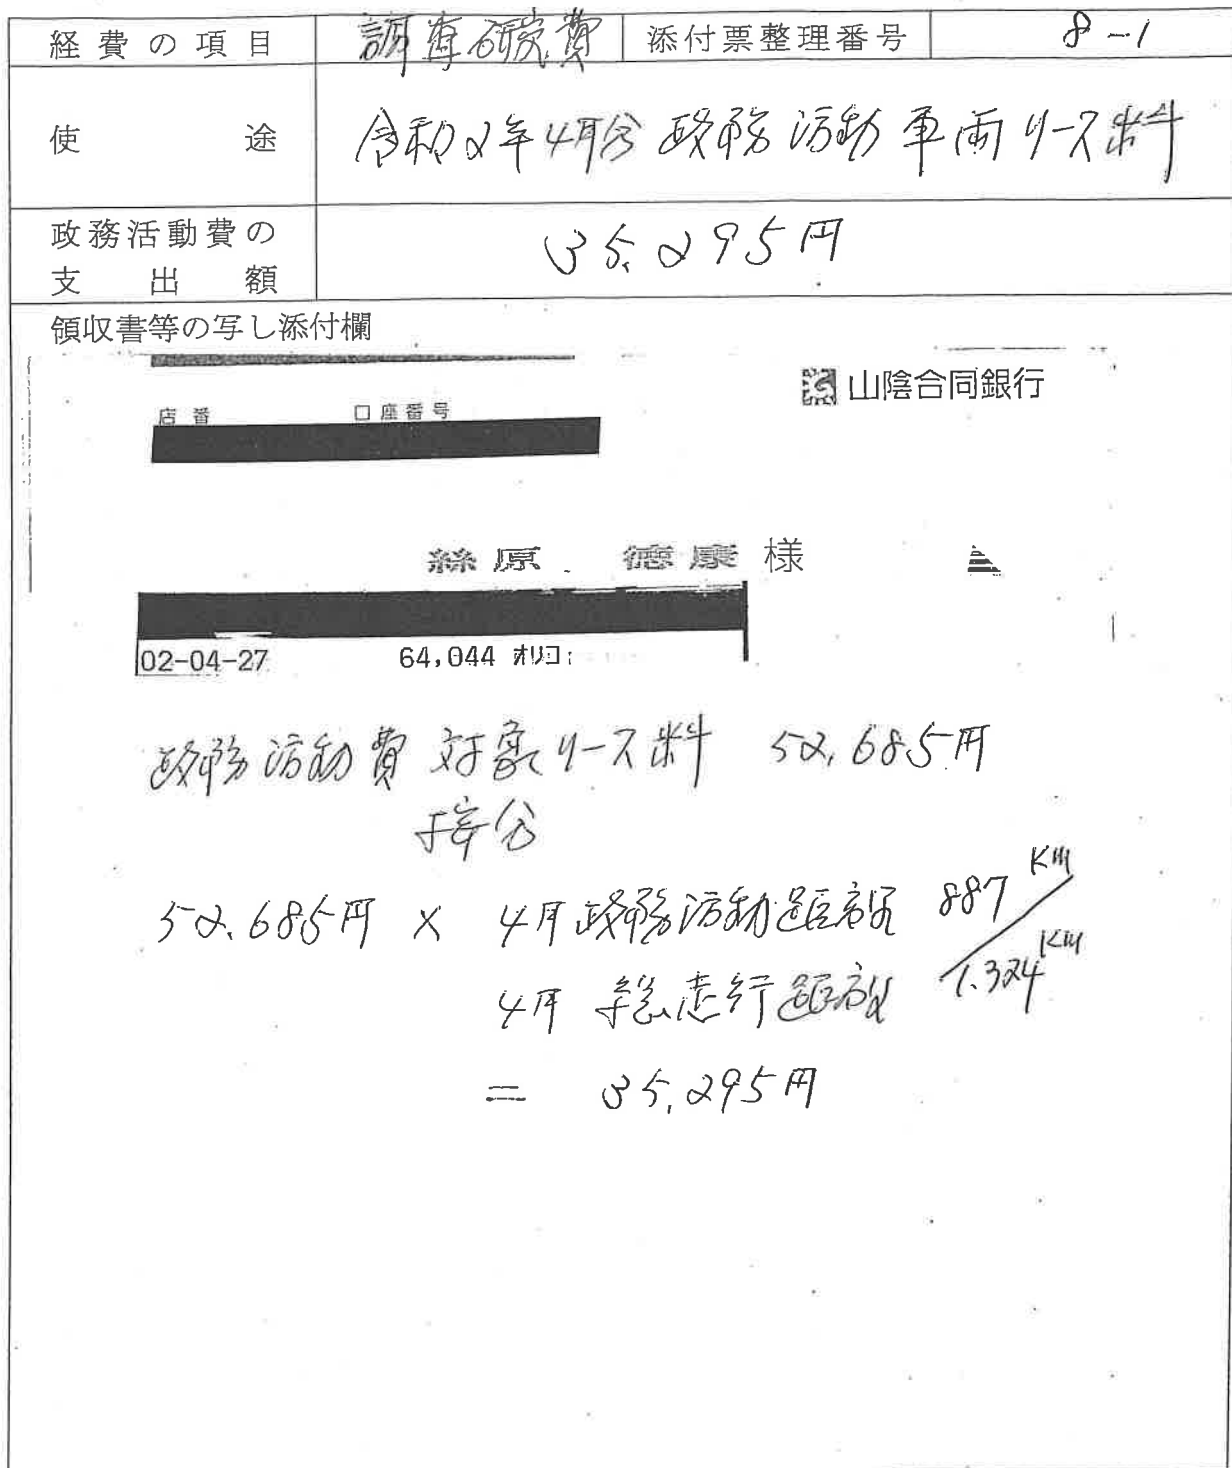 経費の項目 調査研究費 添付票整理番号 8-1
使途 令和2年4月分 政務活動車両リース料
政務活動費の
支出額 35,295円
領収書等の写し添付欄
山陰合同銀行
店番 口座番号
絲原 徳康 様
02-04-27 64,044 オリコ
政務活動費対象リース料 52,685円
按分
52,685円 × 4月政務活動距離 887km
4月総走行距離 1,324km
= 35,295円